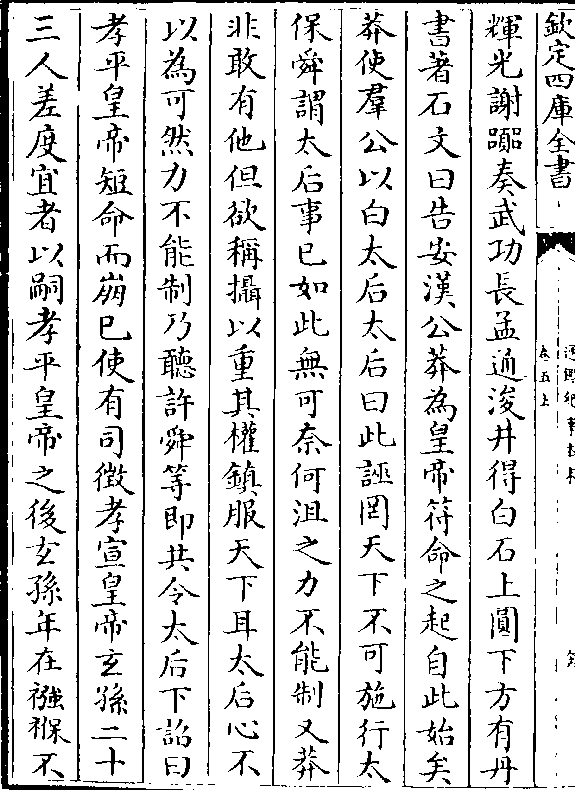 欽定四庫全書
通鑑紀事本末
卷五上
輝光謝嚻奏武功長孟通浚井得白石上圓下方有丹
書著石文曰告安漢公莽為皇帝符命之起自此始矣
莽使羣公以白太后太后曰此誣罔天下不可施行太
保舜謂太后事已如此無可奈何沮之力不能制又莽
非敢有他但欲稱攝以重其權鎮服天下耳太后心不
以為可然力不能制乃聽許舜等即共令太后下詔曰
孝平皇帝短命而崩已使有司徵孝宣皇帝玄孫二十
三人差度宜者以嗣孝平皇帝之後玄孫年在襁褓不